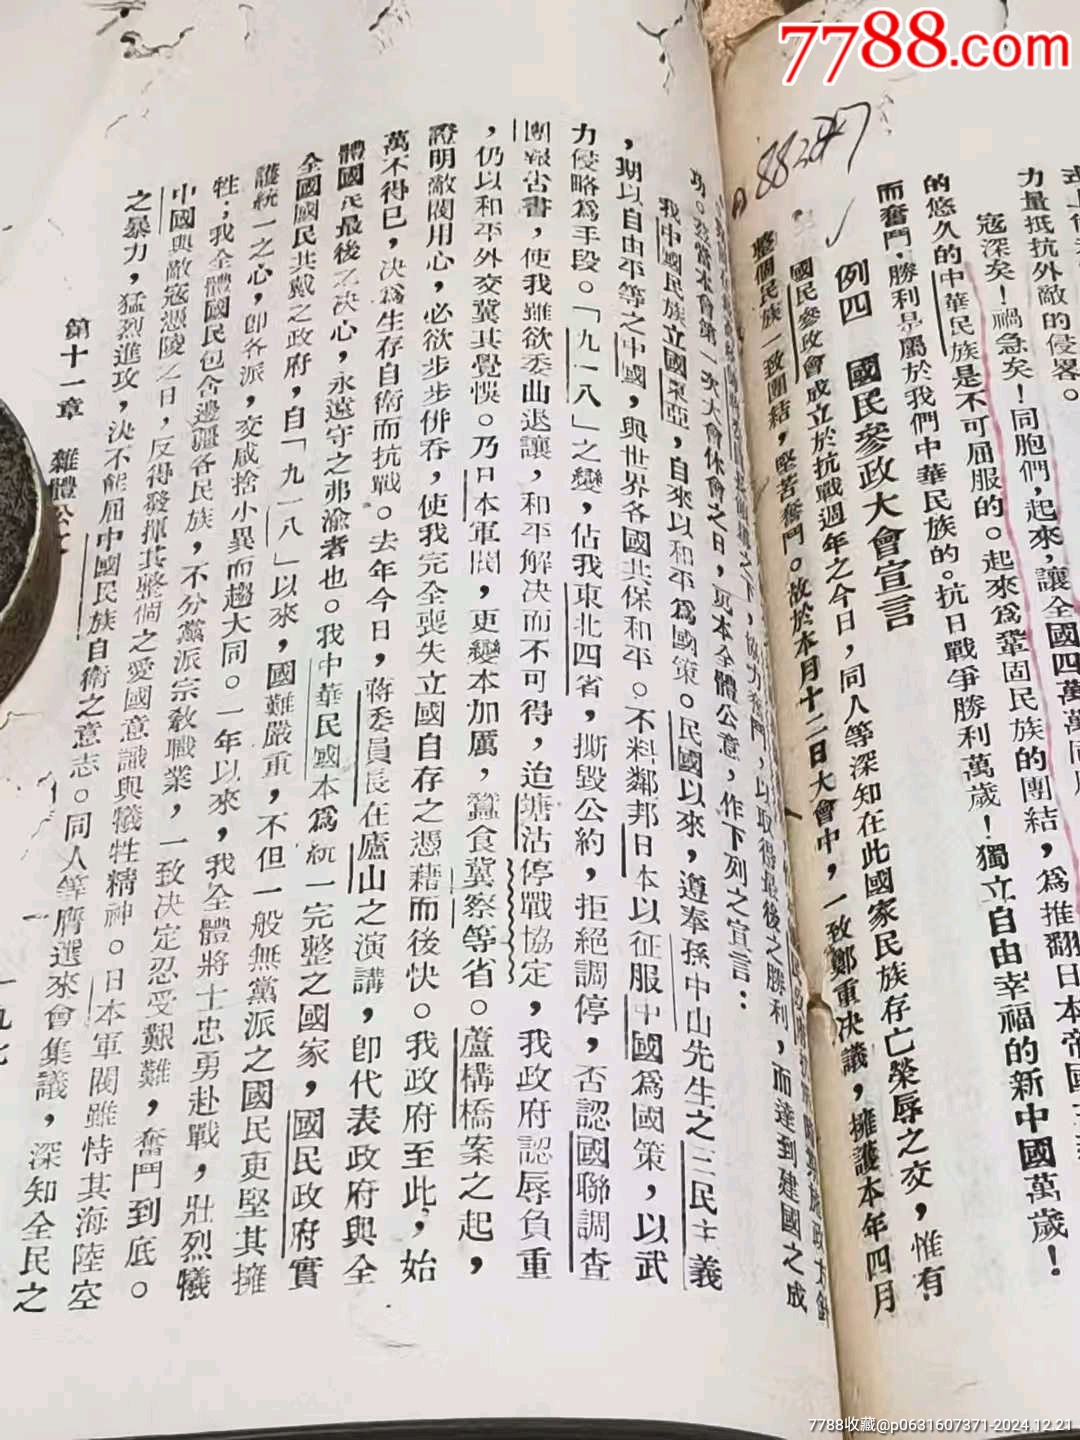 7788.com
力量抵抗外敵的侵畧。
寇深矣！禍急矣！同胞們，起來，讓全國四萬萬同
的悠久的中華民族是不可屈服的。起來爲鞏固民族的團結，爲推翻日本帝國
而奮鬥，勝利是屬於我們中華民族的。抗日戰爭勝利萬歲！獨立自由幸福的新中國萬歲！
例四　國民參政大會宣言
國民參政會成立於抗戰週年之今日，同人等深知在此國家民族存亡榮辱之交，惟有
整個民族一致團結，堅苦奮鬥。故於本月十二日大會中，一致鄭重决議，擁護本年四月
之下，協力奮鬥，以取得最後之勝利，而達到建國之成
功。茲當本會第一次大會休會之日，更本全體公意，作下列之宣言：
我中國民族立國東亞，自來以和平爲國策。民國以來，遵奉孫中山先生之三民主義
，期以自由平等之中國，與世界各國共保和平。不料鄰邦日本以征服中國爲國策，以武
力侵略爲手段。「九一八」之變，佔我東北四省，撕毀公約，拒絕調停，否認國聯調查
團報告書，使我雖欲委曲退讓，和平解决而不可得，迨塘沽停戰協定，我政府認辱負重
，仍以和平外交冀其覺悞。乃日本軍閥，更變本加厲，蠶食冀察等省。蘆構橋案之起，
證明敵閥用心，必欲步步併吞，使我完全喪失立國自存之憑藉而後快。我政府至此，始
萬不得已，决爲生存自衛而抗戰。去年今日，蔣委員長在廬山之演講，卽代表政府與全
體國民最後之决心，永遠守之弗渝者也。我中華民國本爲統一完整之國家，國民政府實
全國國民共戴之政府，自「九一八」以來，國難嚴重，不但一般無黨派之國民更堅其擁
護統一之心，卽各派，交咸捨小異而趨大同。一年以來，我全體將士忠勇赴戰，壯烈犧
牲；我全體國民包含邊疆各民族，不分黨派宗敎職業，一致决定忍受艱難，奮鬥到底。
中國與敵寇憑陵之日，反得發揮其整個之愛國意識與犧牲精神。日本軍閥雖恃其海陸空
之暴力，猛烈進攻，決不能屈中國民族自衛之意志。同人等膺選來會集議，深知全民之
第十一章　雜體公文
一九七
7788收藏@p0631607371-2024.12.21